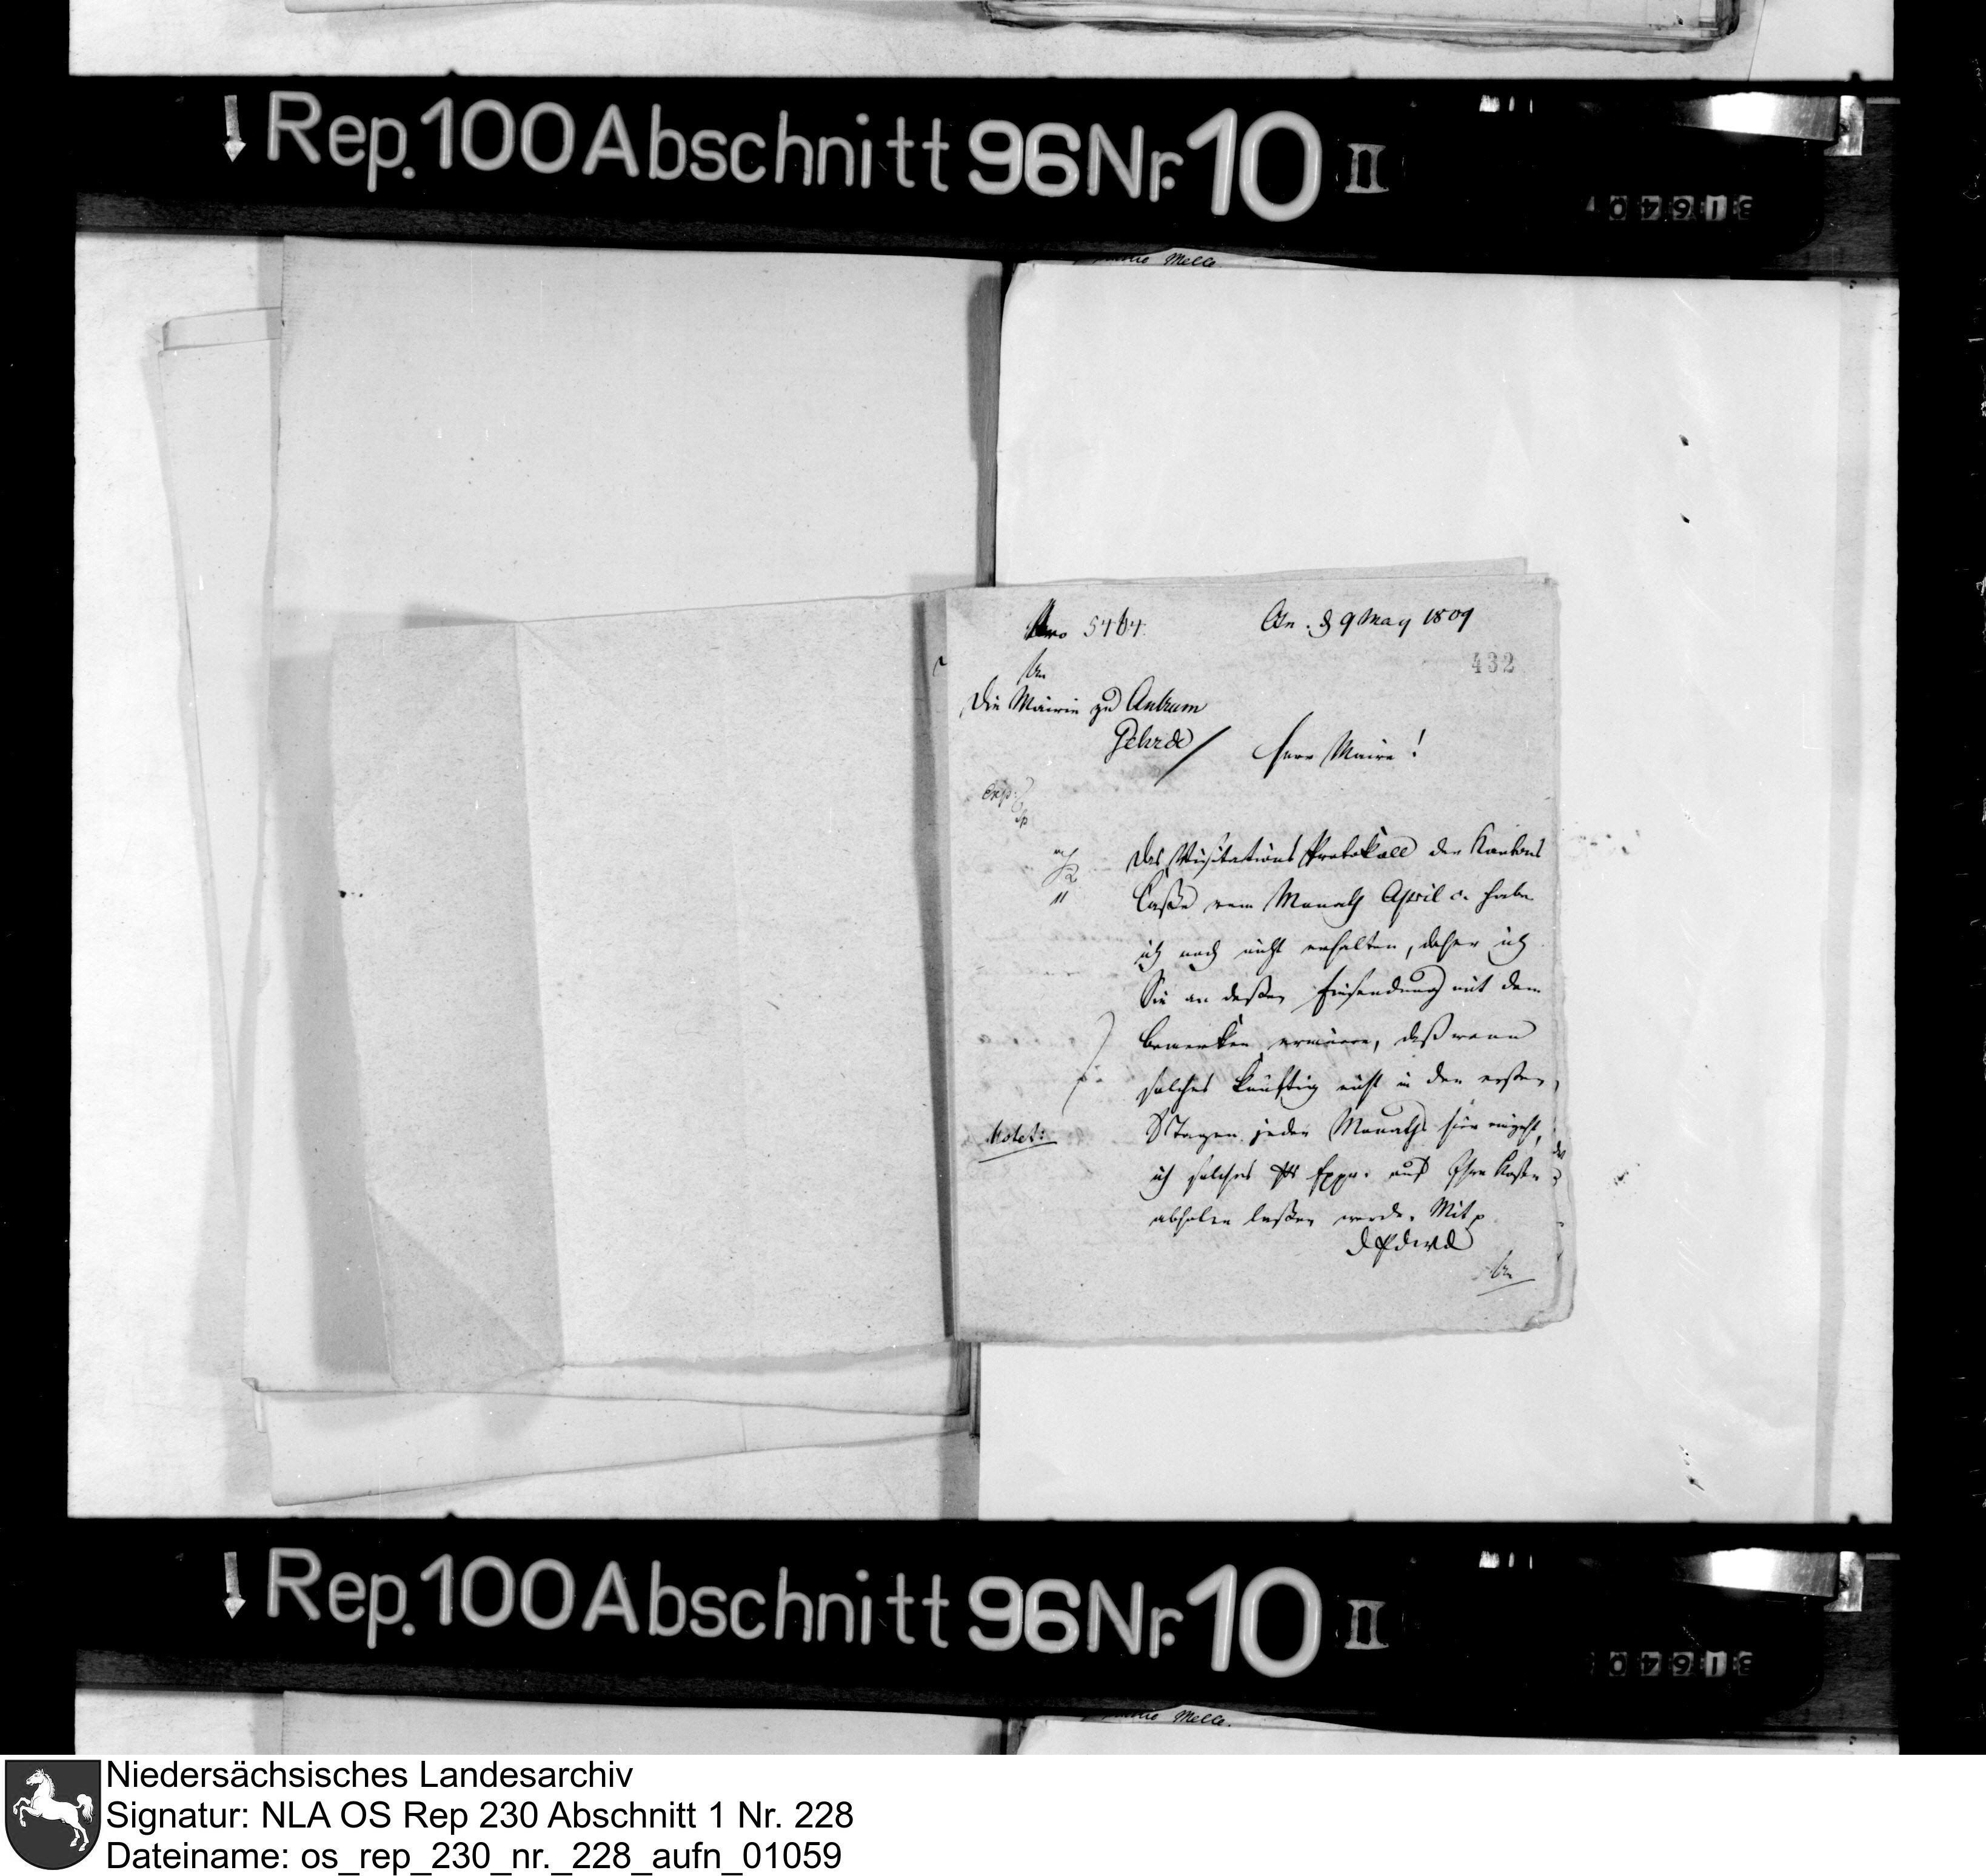 Rep. 100 Abschnitt 96 Nr. 10 II
Melle
Nro 5464.
Osn. d 9 May 1809
432
An
Die Mairie zu Ankum
Gehrde
Herr Maire!
exp:
Das Visitations Protokoll der Kantons
Casse vom Monath April c. habe
ich noch nicht erhalten, daher ich
Sie an deßen Einsendung mit dem
Bemerken erinnere, daß wenn
solches künftig nicht in den ersten
8 Tagen jeden Monaths hier eingeht,
Notet:
ich solches Expr. auf Ihre Kosten
abholen laßen werde. Mit p
D P d W D
Rep. 100 Abschnitt 96 Nr. 10 II
Melle.
Niedersächsisches Landesarchiv
Signatur: NLA OS Rep 230 Abschnitt 1 Nr. 228
Dateiname: os_rep_230_nr._228_aufn_01059